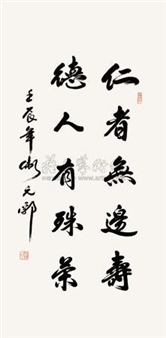 仁者無邊壽
德人有殊榮
壬辰年